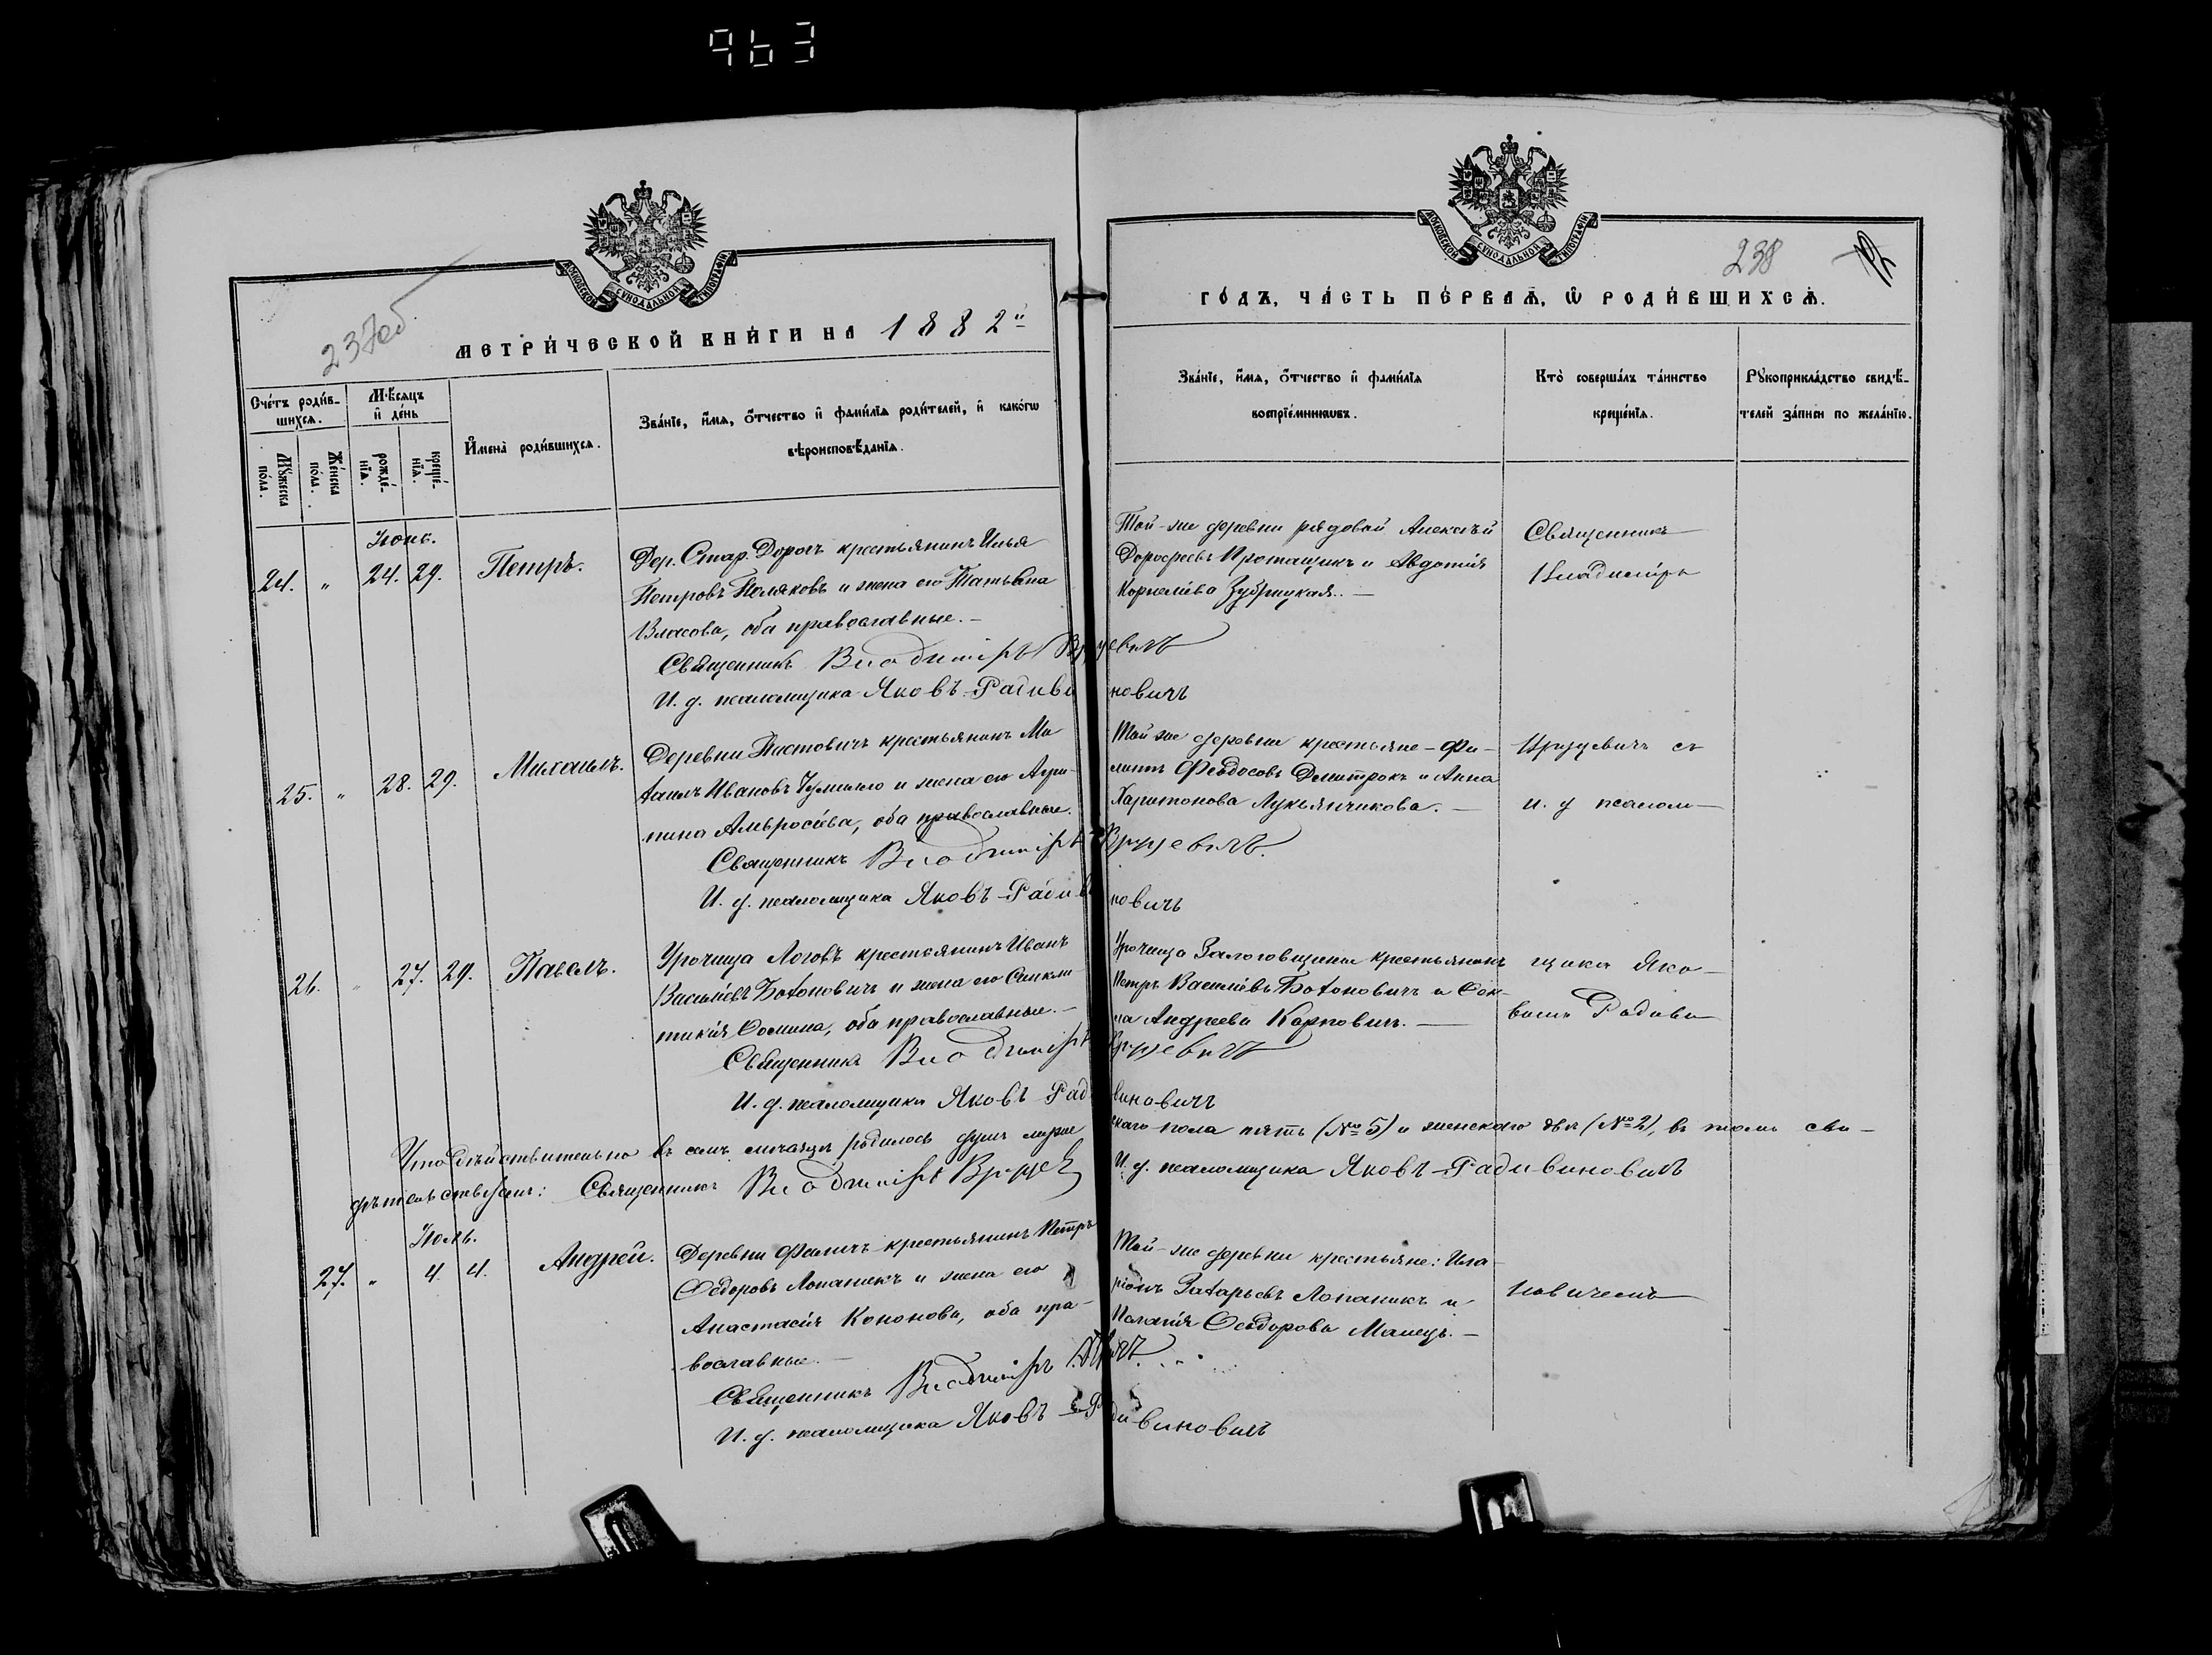 963
МОСКОВСКОЙ СѴНОДАЛЬНОЙ ТИПОГРАФІИ
237об
МЕТРИ́ЧЕСКОЙ КНИ́ГИ НА 1882й
Сче́тъ роди́в-
шихсѧ.
Мꙋ́жеска
по́ла.
Же́нска
по́ла.
М҃ѣсѧцъ
и҆ де́нь
рожде́-
нїѧ.
креще́-
нїѧ.
И҆мена̀ роди́вшихсѧ.
Зва́нїе, и҆́мѧ, ѻ҆́тчество и҆ фами́лїѧ роди́телей, и҆ како́гѡ
вѣроисповѣ́данїѧ.
Іюнь.
24. " 24. 29. Петръ.
Дер. Стар. Дорогъ крестьянинъ Илья
Петровъ Поляковъ и жена его Татьяна
Власова, оба православные.-
Священникъ Владиміръ Вруцевичъ
И. д. псаломщика Яковъ Радивиновичъ
25. " 28. 29. Михаилъ.
Деревни Пастовичъ крестьянинъ Ми
хаилъ Ивановъ и жена его Агри-
пина Амвросіева, оба православные.
Священникъ Владиміръ Вруцевичъ.
И. д. псаломщика Яковъ Радивиновичъ
26. " 27. 29. Павелъ.
Урочища Логовъ крестьянинъ Иванъ
Василіевъ Бохоновичъ и жена его Синкли
тикія Ѳомина, оба православные.-
Священникъ Владиміръ Вруцевичъ
И. д. псаломщика Яковъ Радивиновичъ
Что дѣйствительно въ семъ мѣсяцѣ родилось душъ мужескаго пола пять (№ 5) и женскаго двѣ (№ 2), въ томъ сви-
дѣтельствуемъ: Священникъ Владиміръ Вруцев И. д. псаломщика Яковъ Радивиновичъ
Іюль.
27. " 4. 4. Андрей.
Деревни Фаличъ крестьянинъ Петръ
Ѳедоровъ Лопаникъ и жена его
Анастасія Кононова, оба пра-
вославные.-
Священникъ Владиміръ
И. д. псаломщика Яковъ Радивиновичъ
МОСКОВСКОЙ СѴНОДАЛЬНОЙ ТИПОГРАФІИ
238
ГО́ДЪ, ЧА́СТЬ ПЕ́РВАѦ, Ѡ҆ РОДИ́ВШИХСѦ.
Зва́нїе, и҆́мѧ, ѻ҆́тчество и҆ фами́лїѧ
воспрїе́мникѡвъ.
Кто̀ соверша́лъ та́инство
креще́нїѧ.
Рꙋкоприкла́дство свидѣ́-
телей за́писи по жела́нїю.
Той-же деревни рядовой Алексѣй
Дорофеевъ Протащикъ и Авдотія
Корнеліева Зубрицкая.-
Той же деревни крестьяне-Фи-
липпъ Ѳеодосовъ Дмитрокъ и Анна
Харитонова Лукьянчикова.-
Урочища Залоговщины крестьянинъ
Петръ Василіевъ Бохоновичъ и Ѳек-
ла Андреева Карповичъ.-
Той-же деревни крестьяне: Ила-
ріонъ Захарьевъ Лопаникъ и
Пелагія Ѳеодорова Малецъ.-
Священникъ
Владиміръ
Вруцевичъ съ
и. д псалом-
щика Яко-
вомъ Радиви-
новичемъ